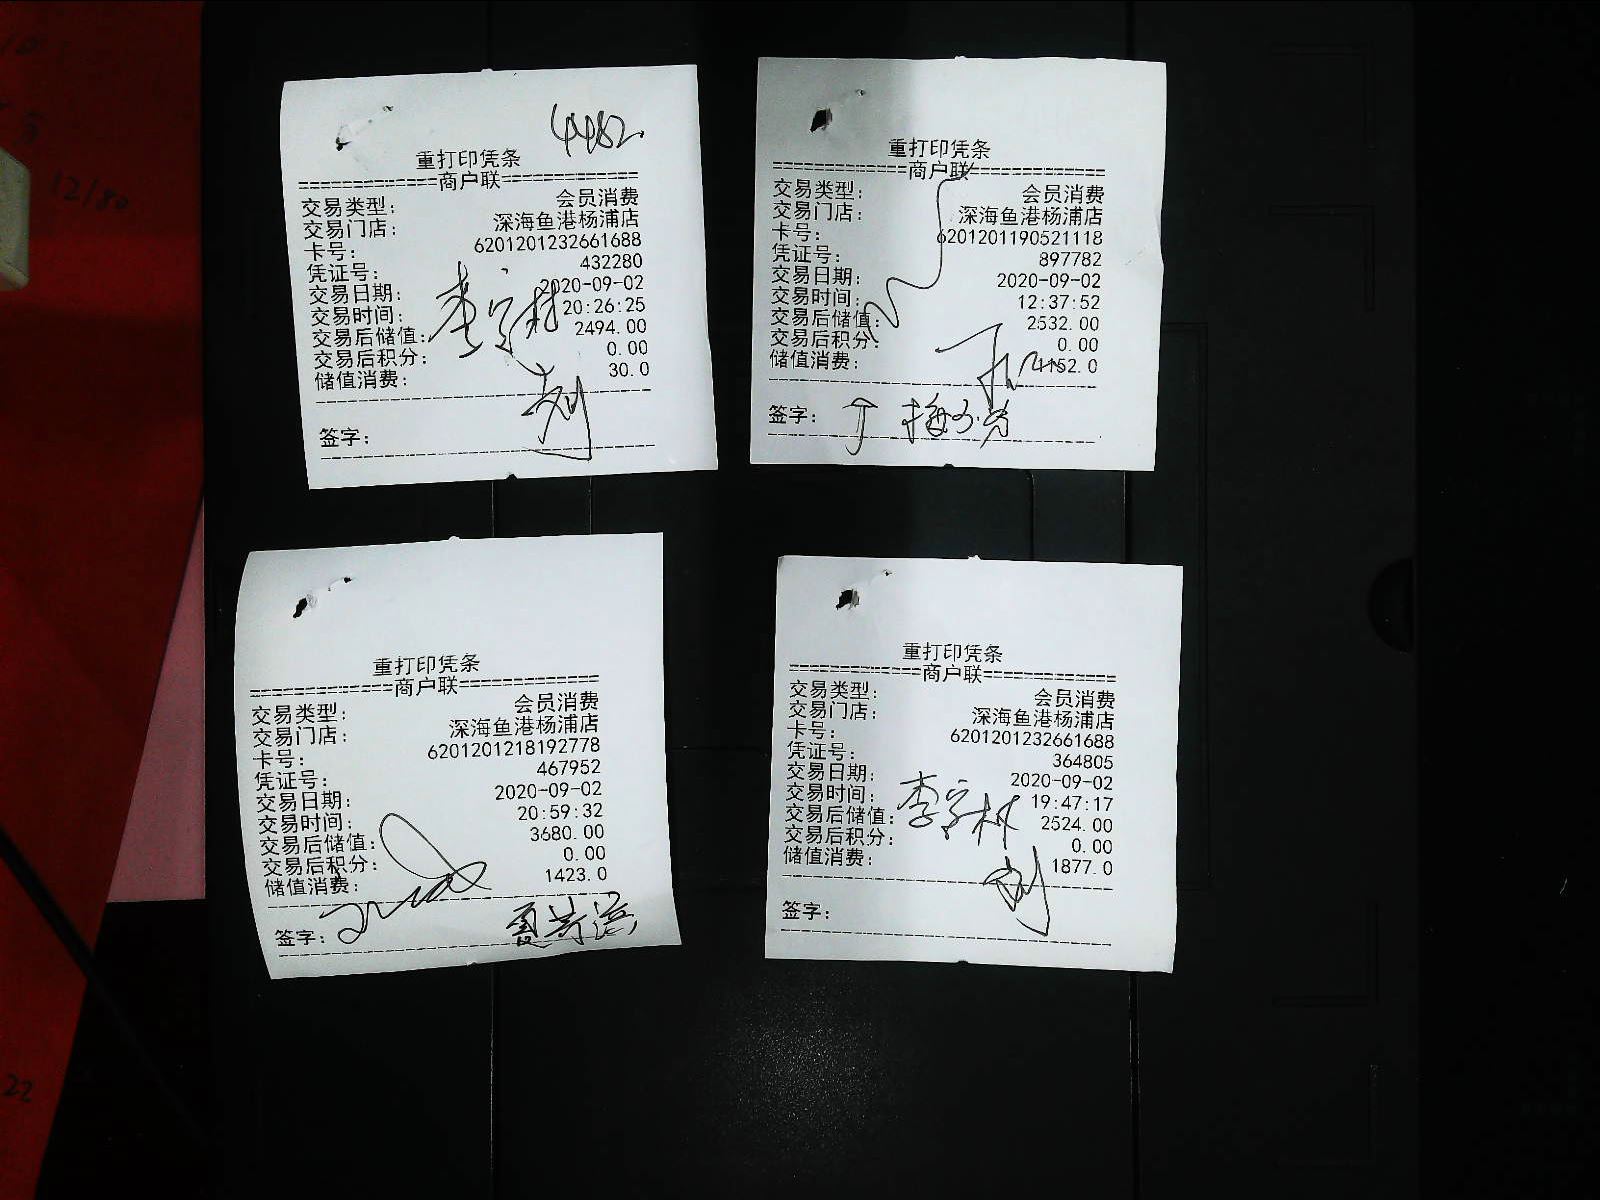 4482
重打印凭条
=============商户联=============
交易类型: 会员消费
交易门店: 深海鱼港杨浦店
卡号: 6201201232661688
凭证号: 432280
交易日期: 2020-09-02
交易时间: 20:26:25
交易后储值: 2494.00
交易后积分: 0.00
储值消费: 30.0
李宗林
刘
签字:
重打印凭条
=============商户联=============
交易类型: 会员消费
交易门店: 深海鱼港杨浦店
卡号: 6201201190521118
凭证号: 897782
交易日期: 2020-09-02
交易时间: 12:37:52
交易后储值: 2532.00
交易后积分: 0.00
储值消费: 1152.0
签字:
重打印凭条
=============商户联=============
交易类型: 会员消费
交易门店: 深海鱼港杨浦店
卡号: 6201201218192778
凭证号: 467952
交易日期: 2020-09-02
交易时间: 20:59:32
交易后储值: 3680.00
交易后积分: 0.00
储值消费: 1423.0
签字:
重打印凭条
=============商户联=============
交易类型: 会员消费
交易门店: 深海鱼港杨浦店
卡号: 6201201232661688
凭证号: 364805
交易日期: 2020-09-02
交易时间: 19:47:17
交易后储值: 2524.00
交易后积分: 0.00
储值消费: 1877.0
李宗林
刘
签字:
12/80
22